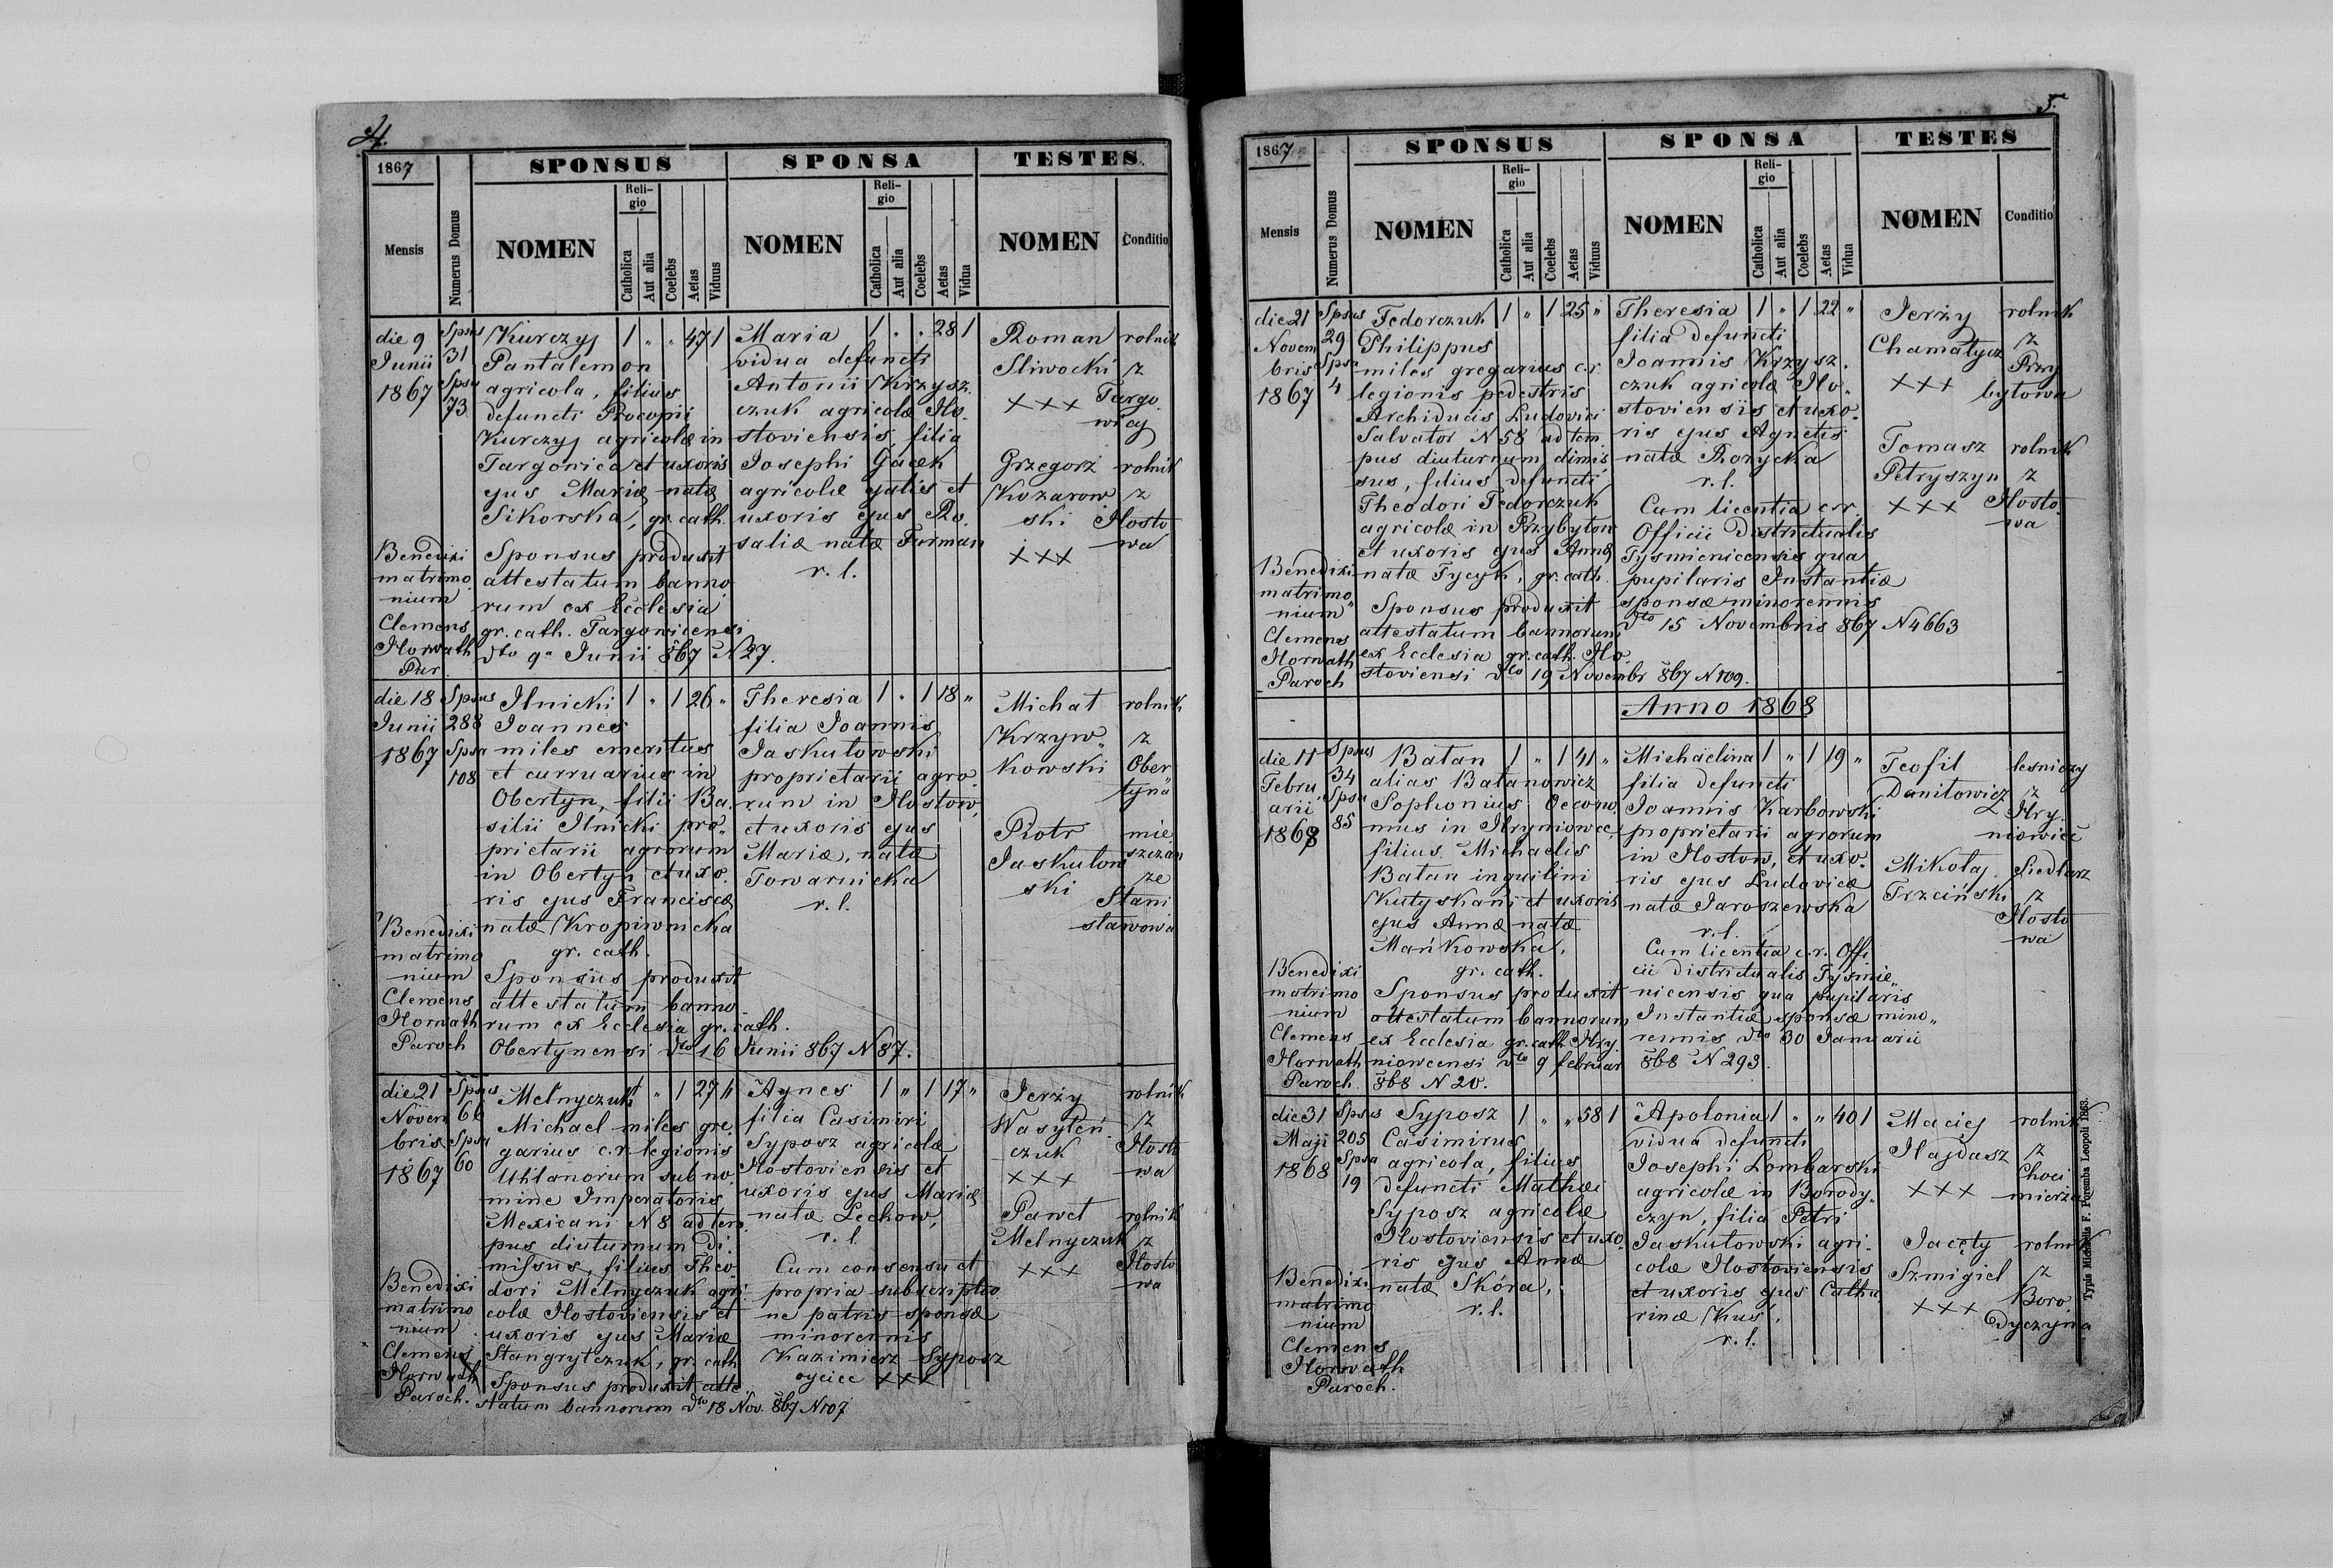 4.
1867
SPONSUS
SPONSA
TESTES.
Mensis
Numerus Domus
NOMEN
Religio
Catholica
Aut alia
Coelebs
Aetas
Viduus
NOMEN
Religio
Catholica
Aut alia
Coelebs
Aetas
Vidua
NOMEN
Conditio
die 9
Junii
1867
Spsus
31
Spsa
73.
Benedixi
matrimo
nium
Clemens
Horwath
Par.
Kurczyj 1 " " 47 1
Pantalemon
agricola, filius
defuncti Procopii
Kurczyj agricolæ in
Targowica et uxoris
ejus Mariæ natæ
Sikorska, gr. cath.
Sponsus produxit
attestatum banno
rum ex Ecclesia
gr. cath. Targowicensi
dto 9a Junii 867 N 27.
Maria 1 " " 28 1
vidua defuncti
Antonii Krzysz.
czuk agricolæ Ho.
stoviensis, filia
Josephi Gacek
agricolæ galis et
uxoris ejus Ro.
saliæ natæ Furman
r. l.
Roman
Sliwocki
+++
Grzegorz
Kozarow
ski
+++
rolnik
z
Targo.
wicy
rolnik
z
Hosto
wa
die 18
Junii
1867
Spsus
288
Spsa
108
Benedixi
matrimo
nium
Clemens
Horwath
Paroch
Ilnicki 1 " 1 26 "
Joannes
miles emeritus
et curruarius in
Obertyn, filii Ba.
silii Ilnicki pro„
prietarii agrorum
in Obertyn et uxo.
ris ejus Franciscæ
natæ Kropiwnicka
gr. cath.
Sponsus produxit
attestatum banno
rum ex Ecclesia gr. cath.
Obertynensi dto 16 Junii 867 N 87.
Theresia 1 " 1 18 "
filia Joannis
Jaskulowski
proprietarii agro
rum in Hostow,
et uxoris ejus
Mariæ, natæ
Towarnicka
r. l.
Michał
Krzyw„
kowski
Piotr
Jaskulow
ski
rolnik
z
Ober
tyna
mie
szczan
ze
Stani
sławowa
die 21
Novem
bris
1867
Spsus
66
Spsa
60
Benedixi
matrimo
nium
Clemens
Horwath
Paroch.
Melnyczuk 1 " 1 27 "
Michael miles gre.
garius c. r. legionis
Uhlanorum sub no.
mine Imperatoris
Mexicani N 8 ad tem
pus diuturnum di.
missus, filius Theo.
dori Melnyczuk agri
colæ Hostoviensis et
uxoris ejus Mariæ
Stangrytczuk, gr. cath
Sponsus produxit atte
statum bannorum dto 18 Nov. 867 N 107
Agnes 1 " 1 17 "
filia Casimiri
Syposz agricolæ
Hostoviensis et
uxoris ejus Mariæ
natæ Lechow,
r. l.
Cum consensu et
propria subscriptio
ne patris sponsæ
minorennis
Kazimierz Syposz
ojciec +++
Jerzy
Wasyleń
czuk
+++
Paweł
Melnyczuk
+++
rolnik
z
Hosto
wa
rolnik
z
Hosto
wa
5.
1867
SPONSUS
SPONSA
TESTES
Mensis
Numerus Domus
NOMEN
Religio
Catholica
Aut alia
Coelebs
Aetas
Viduus
NOMEN
Religio
Catholica
Aut alia
Coelebs
Aetas
Vidua
NOMEN
Conditio
die 21
Novem
bris
1867
Spsus
29
Spsa
4
Benedixi
matrimo
nium
Clemens
Horwath
Paroch
Fedorczuk 1 " 1 25 "
Philippus
miles gregarius c. r.
legionis pedestris
Archiducis Ludovici
Salvator N 58 ad tem
pus diuturnum dimis
sus, filius defuncti
Theodori Fedorczuk
agricolæ in Przybyłow
et uxoris ejus Annæ
natæ Tycyk, gr. cath.
Sponsus produxit
attestatum bannorum
ex Ecclesia gr. cath. Ho.
stoviensi dto 19 Novembr 867 N 109.
Theresia 1 " 1 22 "
filia defuncti
Joannis Krzysz.
czuk agricolæ Ho„
stoviensis et uxo„
ris ejus Agnetis
natæ Rozycka
r. l.
Cum licentia c. r.
Officii Districtualis
Tysmienicensis qua
pupilaris Instantiæ
sponsæ minorennis
dto 15 Novembris 867 N 4663
Jerzy
Chamatycz
+++
Tomasz
Petryszyn
+++
rolnik
z
Przy
bytowa
rolnik
z
Hosto.
wa
Anno 1868
die 11
Febru.
arii
1868
Spsus
34
Spsa
85
Benedixi
matrimo
nium
Clemens
Horwath
Paroch.
Batan 1 " 1 41 "
alias Batanowicz
Sophonius Oecono.
mus in Hryniowce,
filius Michaelis
Batan inquilini
Kutyskani et uxoris
ejus Annæ natæ
Mańkowska,
gr. cath.
Sponsus produxit
attestatum bannorum
ex Ecclesia gr. cath. Hry
niowcensi dto 9 februar
868 N 20.
Michaëlina 1 " 1 19 "
filia defuncti
Joannis Karbowski
proprietarii agrorum
in Hostow, et uxo.
ris ejus Ludovicæ
natæ Jaroszewska
r. l.
Cum licentia c. r. Offi
cii districtualis Tyśmie„
nicensis qua pupilaris
Instantiæ sponsæ mino„
rennis dto 30 Januarii
868 N 293.
Teofil
Daniłowicz
Mikołaj
Trzciński
leśniczy
z
Hry.
niowiec
siedlarz
z
Hosto
wa
die 31
Maji
1868
Spsus
205
Spsa
19
Benedixi
matrimo
nium
Clemens
Horwath
Paroch.
Syposz 1 " " 58 1
Casimirus
agricola, filius
defuncti Mathæi
Syposz agricolæ
Hostoviensis et uxo.
ris ejus Annæ
natæ Skóra,
r. l.
Apolonia 1 " " 40 1
vidua defuncti
Josephi Lombarski
agricolæ in Borody„
czyn, filia Petri
Jaskulowski agri„
colæ Hostoviensis
et uxoris ejus Catha.
rinæ Kus,
r. l.
Maciej
Hajdasz
+++
Jacęty
Szmigiel
+++
rolnik
z
Choci
mierza
rolnik
z
Boro.
dyczyna
Typis Michaelis F. Poremba Leopoli 1863.